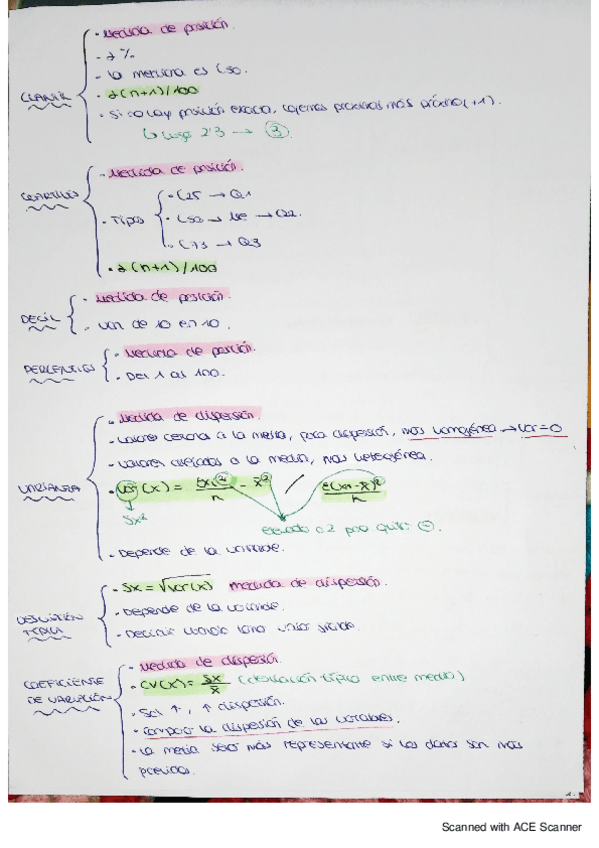 CUANTIL
- Medida de posición.
- a %
- La mediana es C50.
- a(n+1)/100
- Si no hay posición exacta, cogemos posición más próxima(+1).
↳ Luego 2'3 → 3
CUARTILES
- Medida de posición.
- Tipos
- C25 → Q1
- C50 → Me → Q2.
- C75 → Q3
- a(n+1)/100
DECIL
- Medida de posición.
- Van de 10 en 10.
PERCENTILES
- Medida de posición.
- Del 1 al 100.
VARIANZA
- Medida de dispersión.
- Valores cercanos a la media, poca dispersión, más homogénea → Var=0
- Valores alejados a la media, más heterogénea.
- Var(x) = Σxi²/n - x̄² / Σ(xi-x̄)²/n
Sx²
elevado a 2 para quitar ⊖.
- Depende de la variable.
DESVIACIÓN TÍPICA
- Sx = √var(x) medida de dispersión.
- Depende de la variable.
COEFICIENTE DE VARIACIÓN
- Medida de dispersión.
- CV(x) = Sx/x̄ (desviación típica entre media)
- Si ↑, ↑ dispersión.
- Comparar la dispersión de las variables.
- La media será más representante si los datos son más
parecidos.
Scanned with ACE Scanner